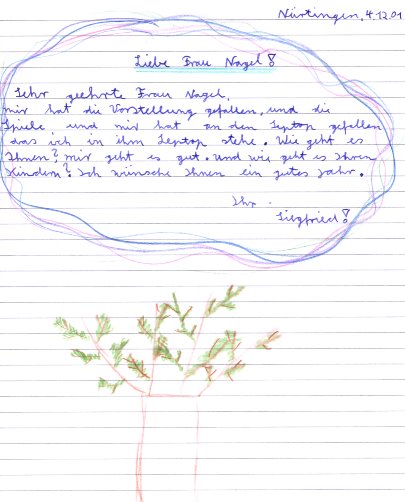 Nürtingen, 4.12.01
Liebe Frau Nagel!
Sehr geehrte Frau Nagel,
mir hat die Vorstellung gefallen, und die
Spiele, und mir hat an den Leptop gefallen
das ich in ihm Leptop stehe. Wie geht es
Ihnen? mir geht es gut. Und wie geht es Ihren
Kindern? Ich wünsche Ihnen ein gutes Jahr.
Ihr
Siegfried!